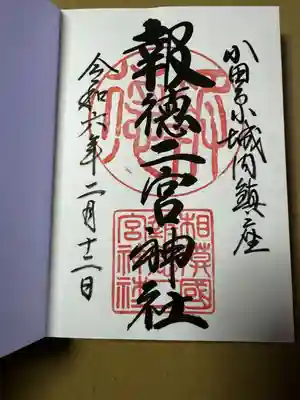 小田原城内鎮座
報徳二宮神社
相模國
報徳二
宮神社
令和六年二月十二日